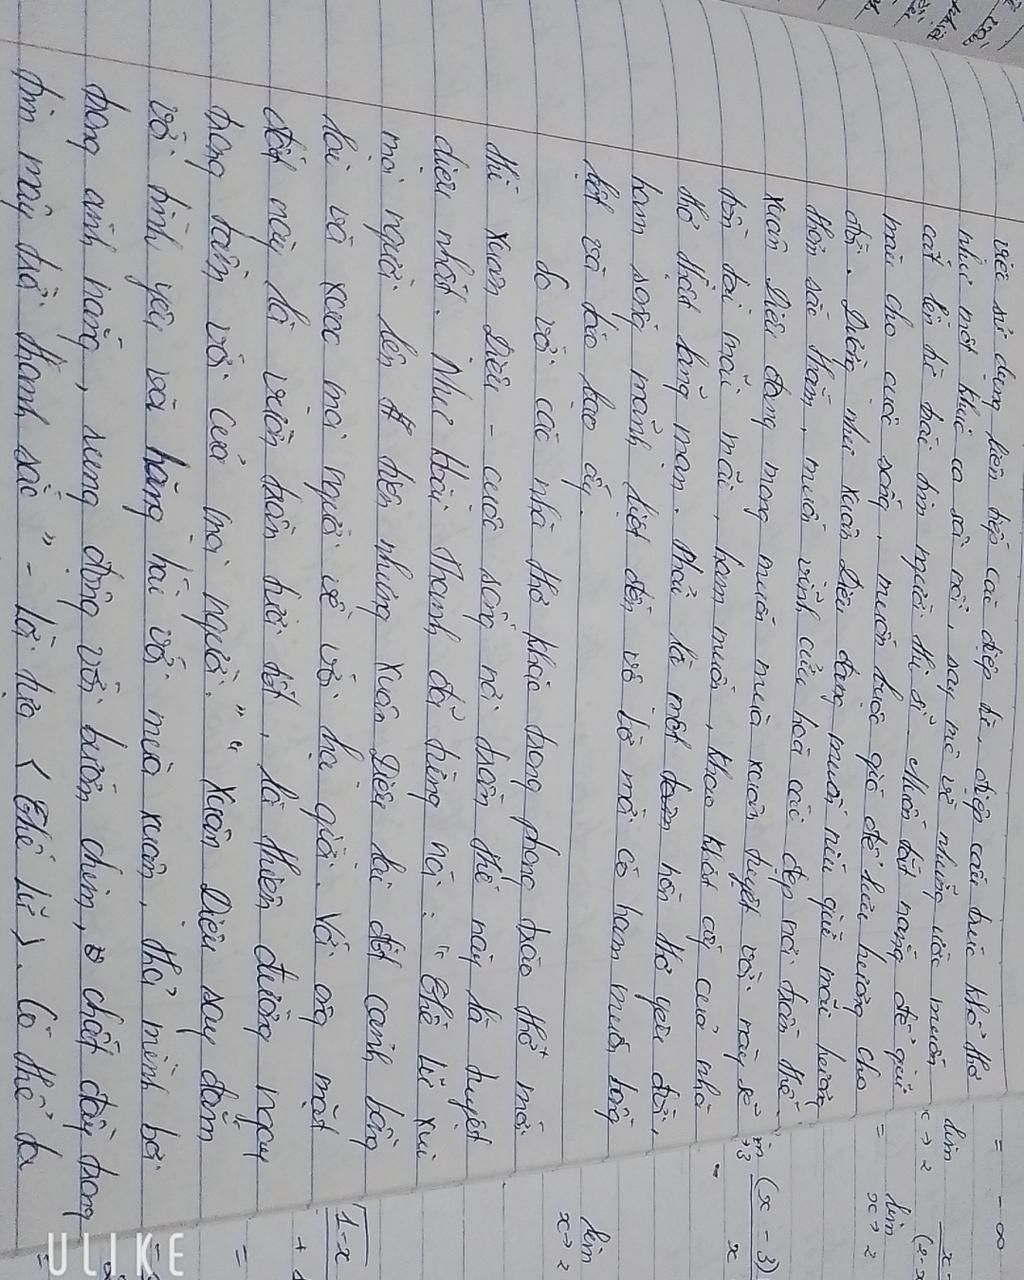 việc sử dụng liên tiếp các điệp từ, điệp cấu trúc khổ thơ
như một khúc ca sôi nổi, say mê về những ước muốn
cất lên từ trái tim người thi sĩ. Muốn tắt nắng để giữ
màu cho cuộc sống, muốn buộc gió để lưu hương cho
đời. Dường như Xuân Diệu đang muốn níu giữ mãi hương
thơm sắc thắm, muốn vĩnh cửu hoá cái đẹp nơi trần thế.
Xuân Diệu đang mong muốn mùa xuân tuyệt vời này sẽ
tồn tại mãi mãi, ham muốn, khao khát ấy của nhà
thơ thật lãng mạn. Phải là một tâm hồn thơ yêu đời,
ham sống mãnh liệt đến vô bờ mới có ham muốn, lòng
và táo bạo ấy.
So với các nhà thơ khác trong phong trào thơ mới
thì Xuân Diệu - cuộc sống nơi trần thế này là tuyệt
diệu nhất. Như Hoài Thanh đã từng nói: "Thế Lữ xui
mọi người lên đến nhưng Xuân Diệu lại đốt cảnh bồng
lai và xua mọi người về với hạ giới. Với ông mặt
đất này là vườn trần tươi tốt, là thiên đường ngay
trong tầm với của mọi người." "Xuân Diệu say đắm
với tình yêu và hăng hái với mùa xuân, thả mình bơi
trong ánh nắng, rung động với bướm chim, chất đầy trong
tim mây trời thanh sắc" - lời tựa (Thế Lữ). Có thể là
= - ∞
lim
x → 2
= lim
x → 2
(x - 3)
x
lim
x → 2
1-x
=
ULIKE